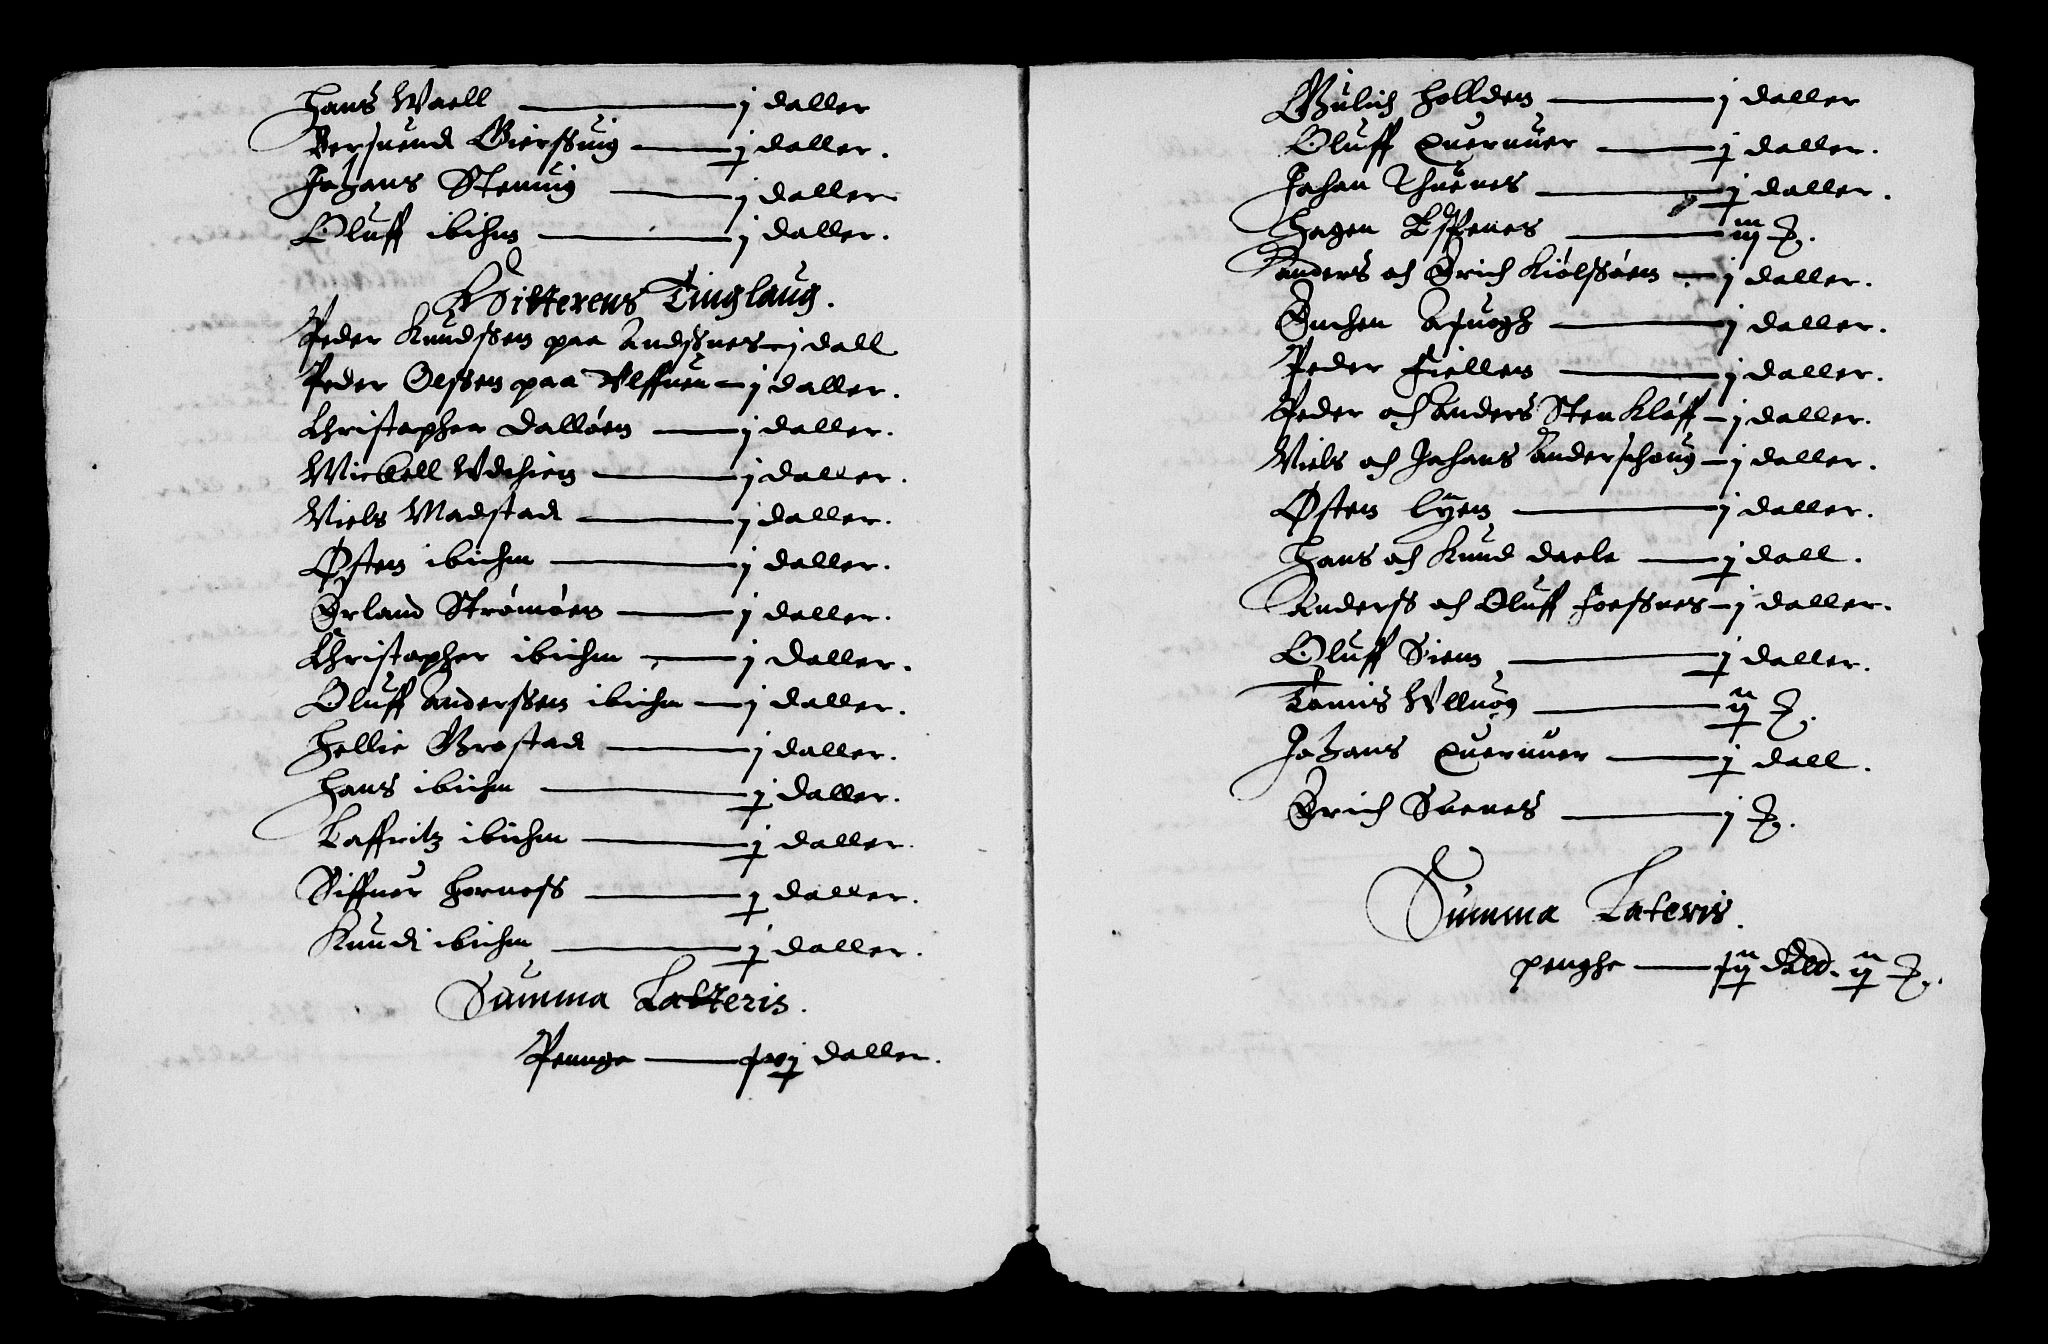 Hans Waell — j daller
Bersuend Gierssuig — j daller.
Johans Stennig — j daller
Oluff ibihm — j daller.
Hitterens Tinglaug.
Peder Knudssen paa Andssnes — j dall
Peder Olssen paa Ulffnen — j daller.
Christopher Dalløen — j daller.
Mickell Udehien — j daller.
Niels Madstad — j daller.
Østen ibihm — j daller.
Erland Strømøen — j daller.
Christopher ibihm — j daller.
Oluff Anderssen ibihm — j daller.
Hellie Grostad — j daller.
Hans ibihm — j daller.
Laffritz ibihm — j daller.
Siffuer Horness — j daller.
Knud ibihm — j daller.
Summa Latteris.
Pennge — daller.
Gulich Hollden — j daller
Oluff Quernuer — j daller.
Johan Thuenes — j daller.
Hagen Espenes — iij
Anders och Erich Kiølssøen — j daller.
Suchen — j daller.
Peder Fiellen — j daller.
Peder och Anders Stenkløff — j daller.
Niels och Johans Anderschoug — j daller.
Østen Lyen — j daller.
Hans och Knud Daele — j dall.
Anderss och Oluff Foessnes — j daller.
Oluff Siem — j daller.
Tomis Ullnøg — ij
Johans Quernuer — j dall.
Erich Suenes — j
Summa Lateris.
penghe — dald. ij